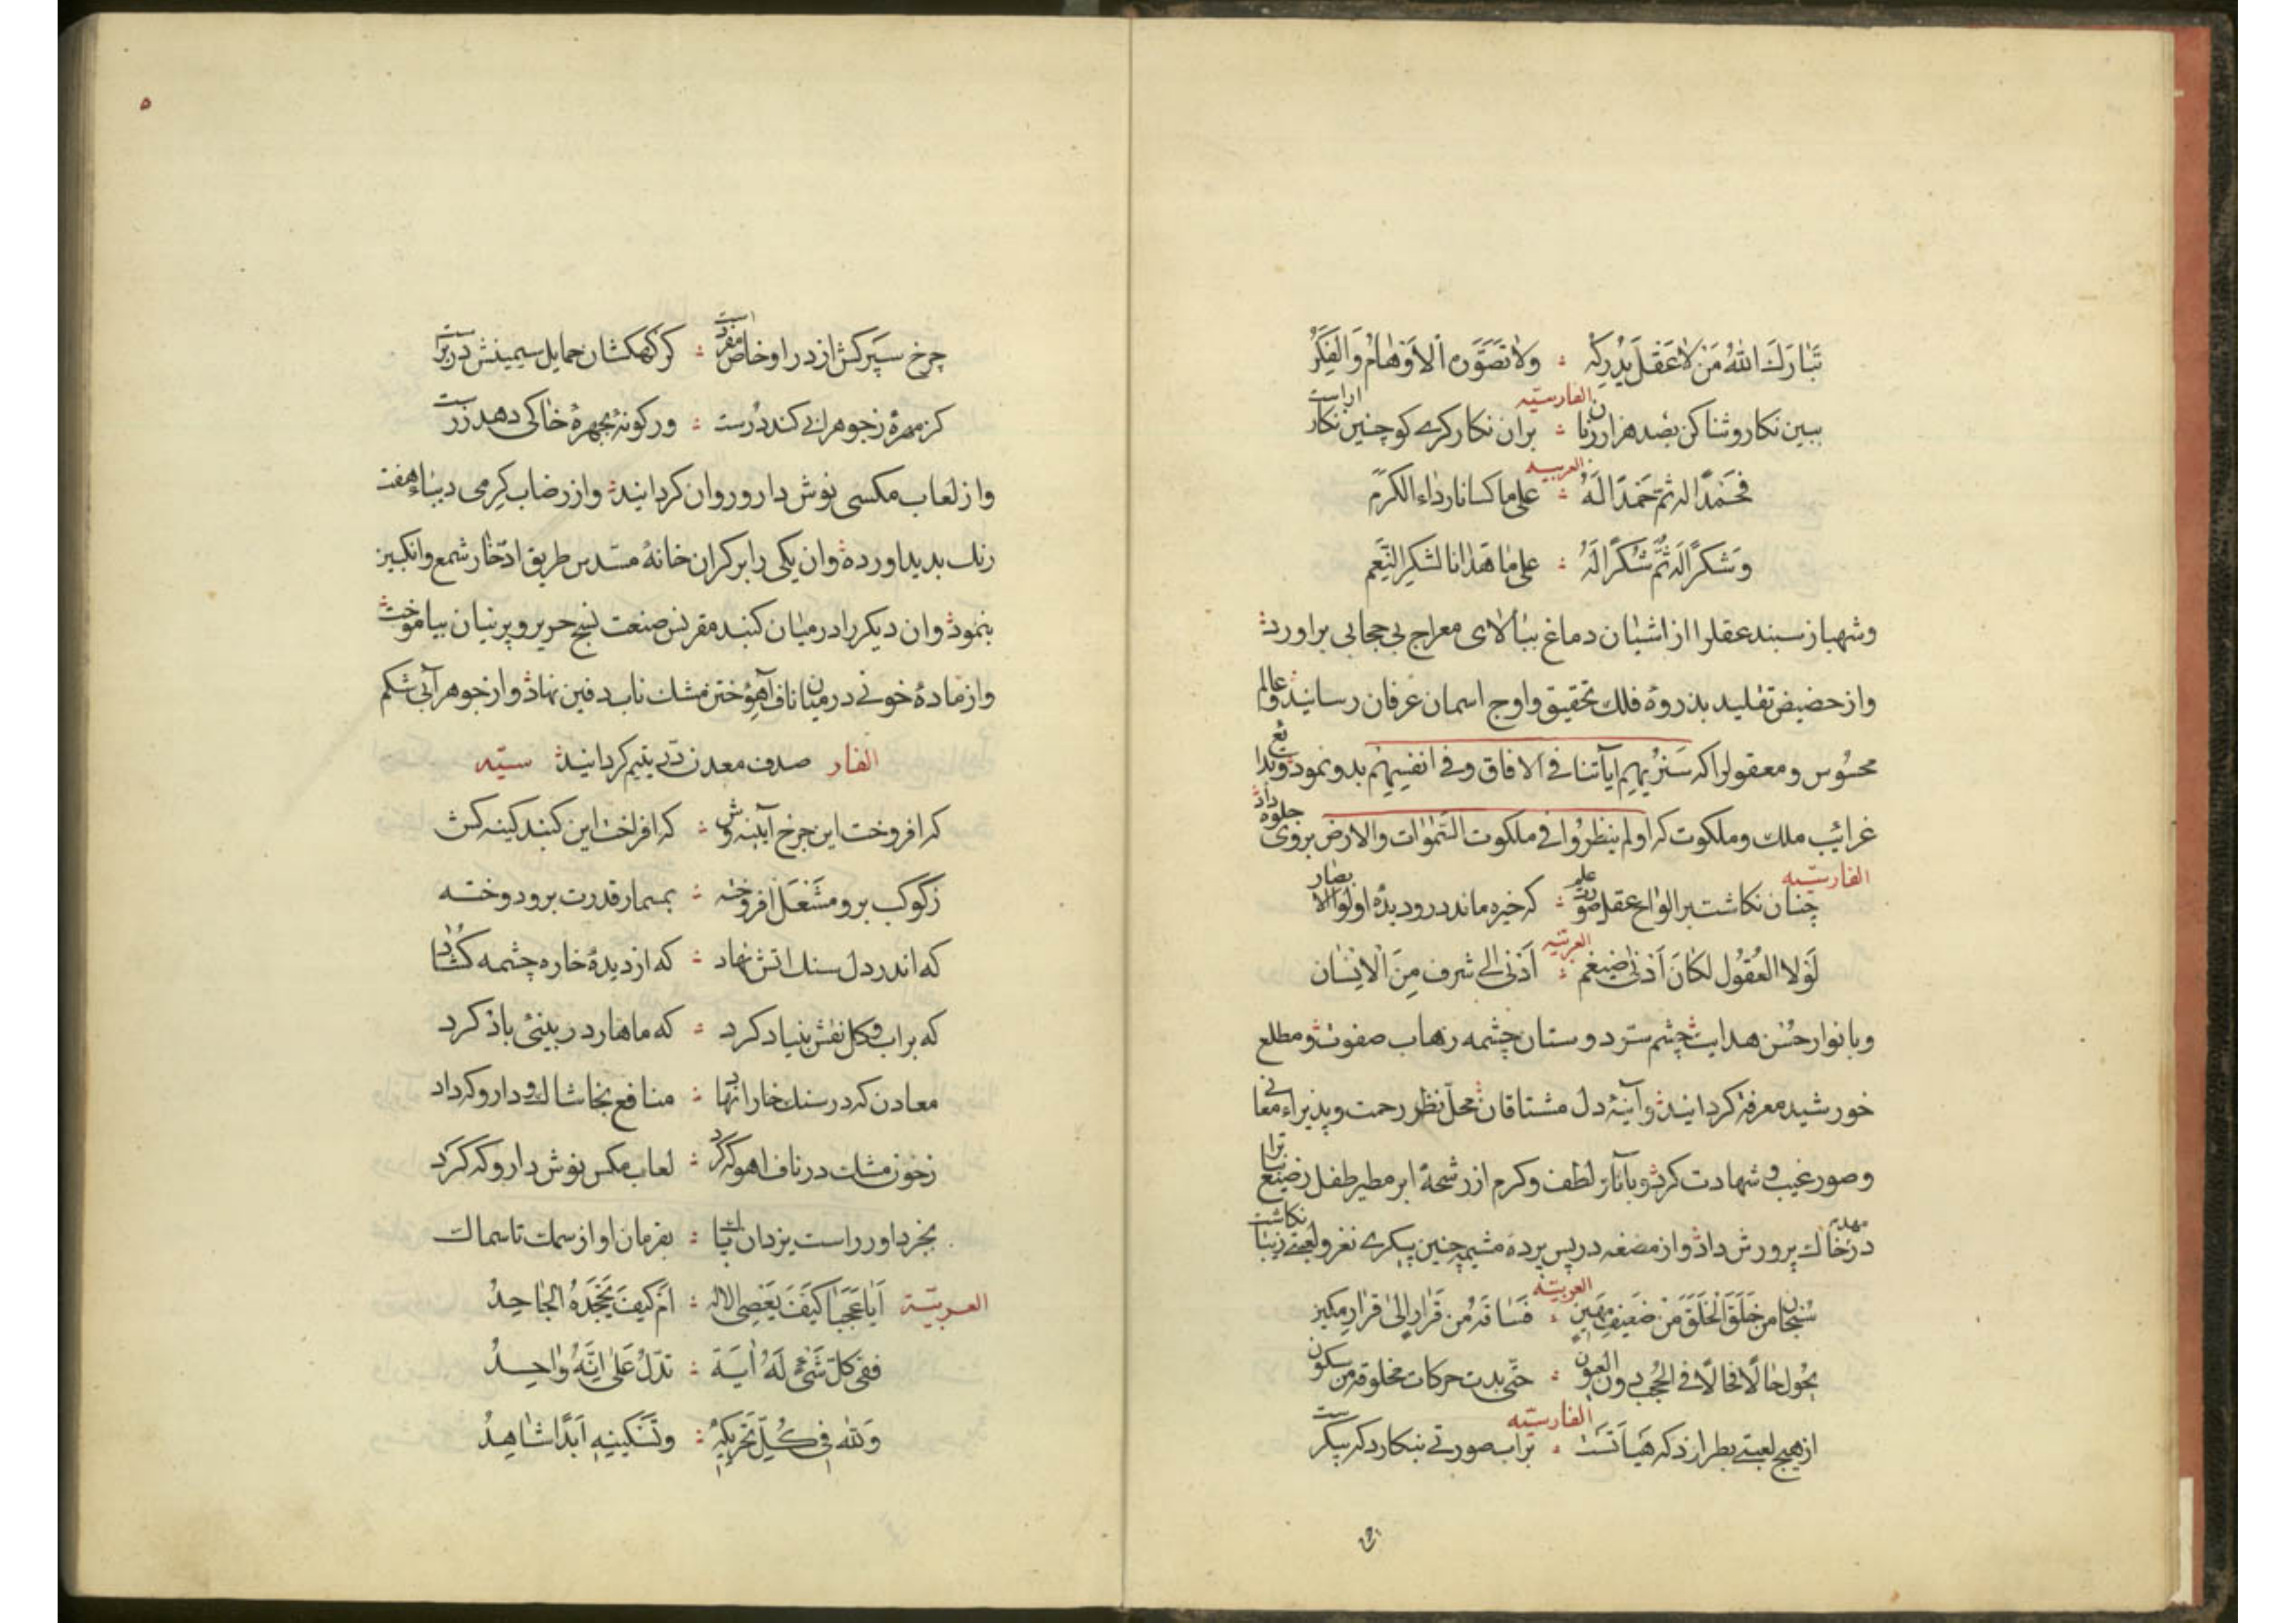 تَبٰارَكَ اللهُ مَنْ لاٰ عَقْلَ يُدْرِكُه ؞ ولاٰ تَصَوَّرَه الاَوْهٰامُ وَالفِكَرُ
الفارسیّه
ببین نکار و ثنا کن بصد هزار زبان ؞ بران نکارکرے کو چنین نکار اراست
العربیه
فحَمْدًا لَه ثمّ حَمْدًا لَهُ ؞ علی ما کسانا رداء الکرَمْ
وَشکرًا لَه ثُمَّ شُکرًا لَهُ ؞ علی مٰا هَدٰانا لشکرِ النِّعَم
وشهباز سبند عقلرا از اشیٰان دماغ ببٰالای معراج بی حجابی براورد
واز حضیض تقلید بذروهٔ فلك تحقیق واوج اسمان عرفان رسانید وعالم
محسُوس ومعقولرا که سَنرُیهِم اٰیاتنا فے الافاق وفے انفسِهِم بدو نمود وبدایع
غرائب ملك وملکوت که اولم ینظرُوا فے ملکوت السّمٰوات والارض بروی جلوه داد
الفارسیّه
چنان نکاشت بر الواح عقل صورت علم ؞ که خیره ماند درو دیدهٔ اولوا الابصار
العربیّه
لَوْلا العُقوُل لکٰانَ اَدْنیٰ ضیغم ؞ اَدْنیٰ الی شرف مِنَ الاِنسٰان
وبانوار حُسْن هدایت چشم سرّ دوستان چشمه رهاب صفوت ومطلع
خورشید معرفة کردانید وآینهٔ دل مشتاقان محلّ نظر رحمت وپذیراء معانی
وصور غیب وشهادت کرد وباثار لطف وکرم از رشحهٔ ابر مطیر طفل رضیع نبات را
در مهد خاك پرورش داد واز مضغه در پس پردهٔ مشیمه چنین پیکرے نغز ولعبتے زیبٰا نکاشت
العربیّه
سُبْحٰان من خَلَقَ الْخَلْقَ مَنْ ضَعیفٍ مَهین ؞ فَسٰاقَهُ من قَرٰارٍ اِلیٰ قرٰارٍ مکین
یحُول حٰالًا فحٰالًا فے الحُجْبِ دون العیون ؞ حتّی بدت حرکات مخلوقة من سکون
الفارسیّه
از هیچ لعبتے بطرازد که هَیأتست ؞ براب صورتے بنکارد که پیکرست
چرخ سپَرکش از در او خاص مفردست ؞ کز کهکشان حمایل سیمینش در برست
کز مهرهٔ ز جوهر ابی کند دُرست ؞ ور کونهٔ بچهرهٔ خاکی دهد زرست
واز لعاب مکسی نوش دارو روان کردانید واز رضاب کِرمی دیبٰاء هفت
رنك بدید اورده وان یکی را بر کران خانهٔ مسدّس طریق ادّخار شمع وانکبین
بنمود وان دیکر را در میٰان کنبد مقرنس صنعت نسج حریر وپرنیان بیاموخت
واز مادهٔ خونے در میان ناف آهوُ ختن مشك ناب دفین نهاد واز جوهر آبی شکم
الفار صدف معدن درّ یتیم کردانید سیّه
که افروخت این چرخ آینه وش ؞ که افراخت این کنبد کینه کش
زکوکب برو مشعَل افروخته ؞ بمسمار قدرت برو دوخته
که اندر دل سنك اتش نهاد ؞ که از دیدهٔ خاره چشمه کشاد
که بر اب وکل نقش بنیاد کرد ؞ که ماهار در بینئ باد کرد
معادن که در سنك خارا نهاد ؞ منافع بخاشاك ودارو که داد
زخون مشك در ناف اهو که کرد ؞ لعاب مکس نوش دارو که کرد
بجز داور راست یزدان پٰاك ؞ بفرمان او از سمك تا سماك
العربیّة اَیٰا عَجَبًا کَیْفَ یَعْصِی الالٰه ؞ اَمْ کیفَ یَجْحَدُهُ الجٰاحِدُ
ففی کلّ شَیْئٍ لَهُ اٰیَة ؞ تدّلُ عَلیٰ اَنَّهُ وٰاحِدُ
وَللهِ فی کُلِّ تَحْرِیکَةٍ ؞ وتَسْکینَةٍ اَبَدًا شٰاهِدُ